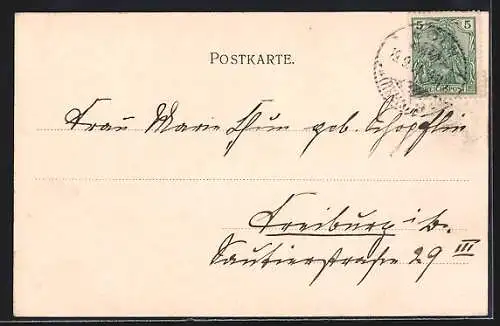 POSTKARTE.
5 5
Frau Marie Thum geb. Schöpflin
Freiburg i. B.
Sautierstraße 29 III